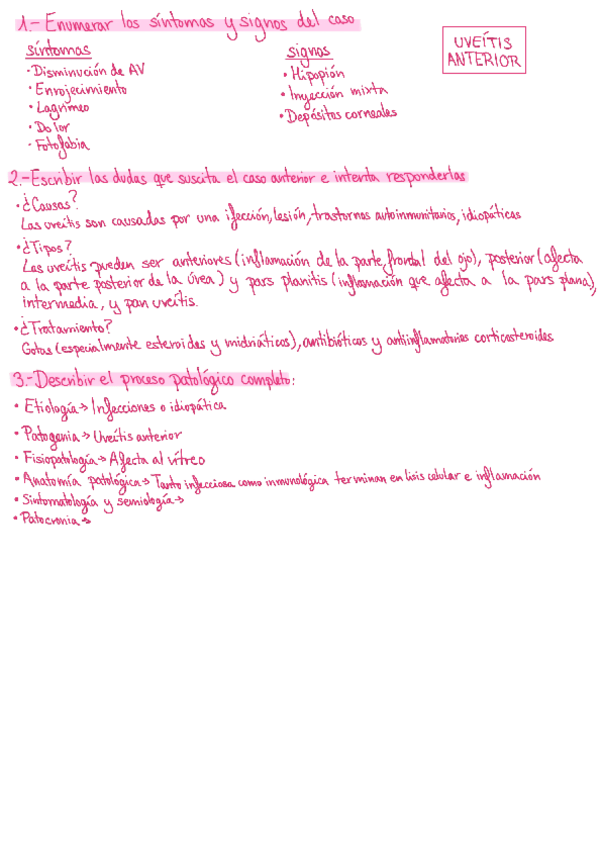 1.- Enumerar los síntomas y signos del caso
UVEÍTIS
ANTERIOR
síntomas
· Disminución de AV
· Enrojecimiento
· Lagrimeo
· Dolor
· Fotofobia
signos
· Hipopión
· Inyección mixta
· Depósitos corneales
2.- Escribir las dudas que suscita el caso anterior e intenta responderlas
· ¿Causas?
Las uveítis son causadas por una ifección, lesión, trastornos autoinmunitarios, idiopáticas
· ¿Tipos?
Las uveítis pueden ser anteriores (inflamación de la parte frontal del ojo), posterior (afecta
a la parte posterior de la úvea) y pars planitis (inflamación que afecta a la pars plana),
intermedia, y pan uveítis.
· ¿Tratamiento?
Gotas (especialmente esteroides y midriáticos), antibióticos y antiinflamatorios corticosteroides
3.- Describir el proceso patológico completo:
· Etiología → Infecciones o idiopática
· Patogenia → Uveítis anterior
· Fisiopatología → Afecta al vítreo
· Anatomía patológica → Tanto infecciosa como inmunológica terminan en lisis celular e inflamación
· Sintomatología y semiología →
· Patocronia →